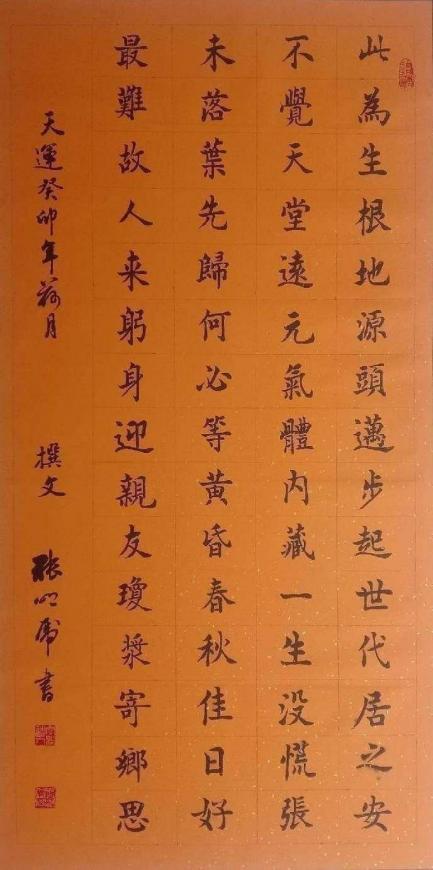 此為生根地源頭邁步起世代居之安
不覺天堂遠元氣體內藏一生没慌張
未落葉先歸何必等黄昏春秋佳日好
最難故人来躬身迎親友瓊漿寄鄉思
天運癸卯年荷月 撰文 張心虎書